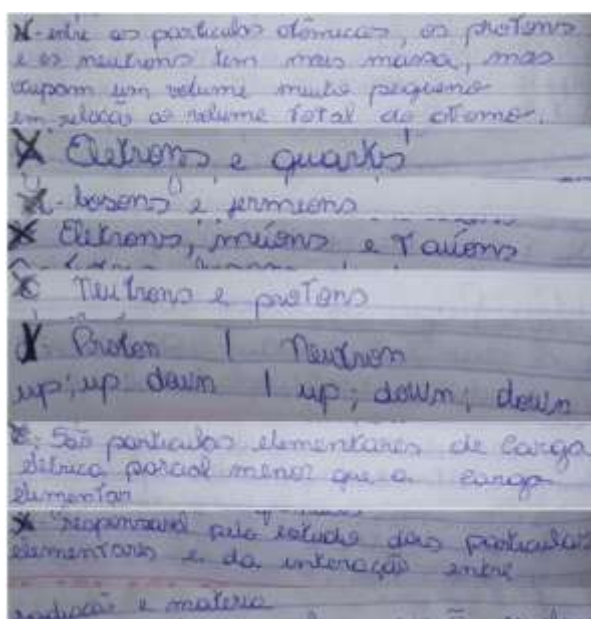 -entre as particulas atômicas, os protons
e os neutrons tem mais massa, mas
ocupam um volume muito pequeno
em relação ao volume total do atomo.
X Eletrons e quarks
-bosons e fermions
X Eletrons, múons e Tauons
Neutrons e protons
Proton | Neutron
up; up down | up; down; down
São particulas elementares de carga
elétrica parcial menor que a carga
elementar
X responsavel pelo estudo das particulas
elementares e da interação entre
radiação e materia